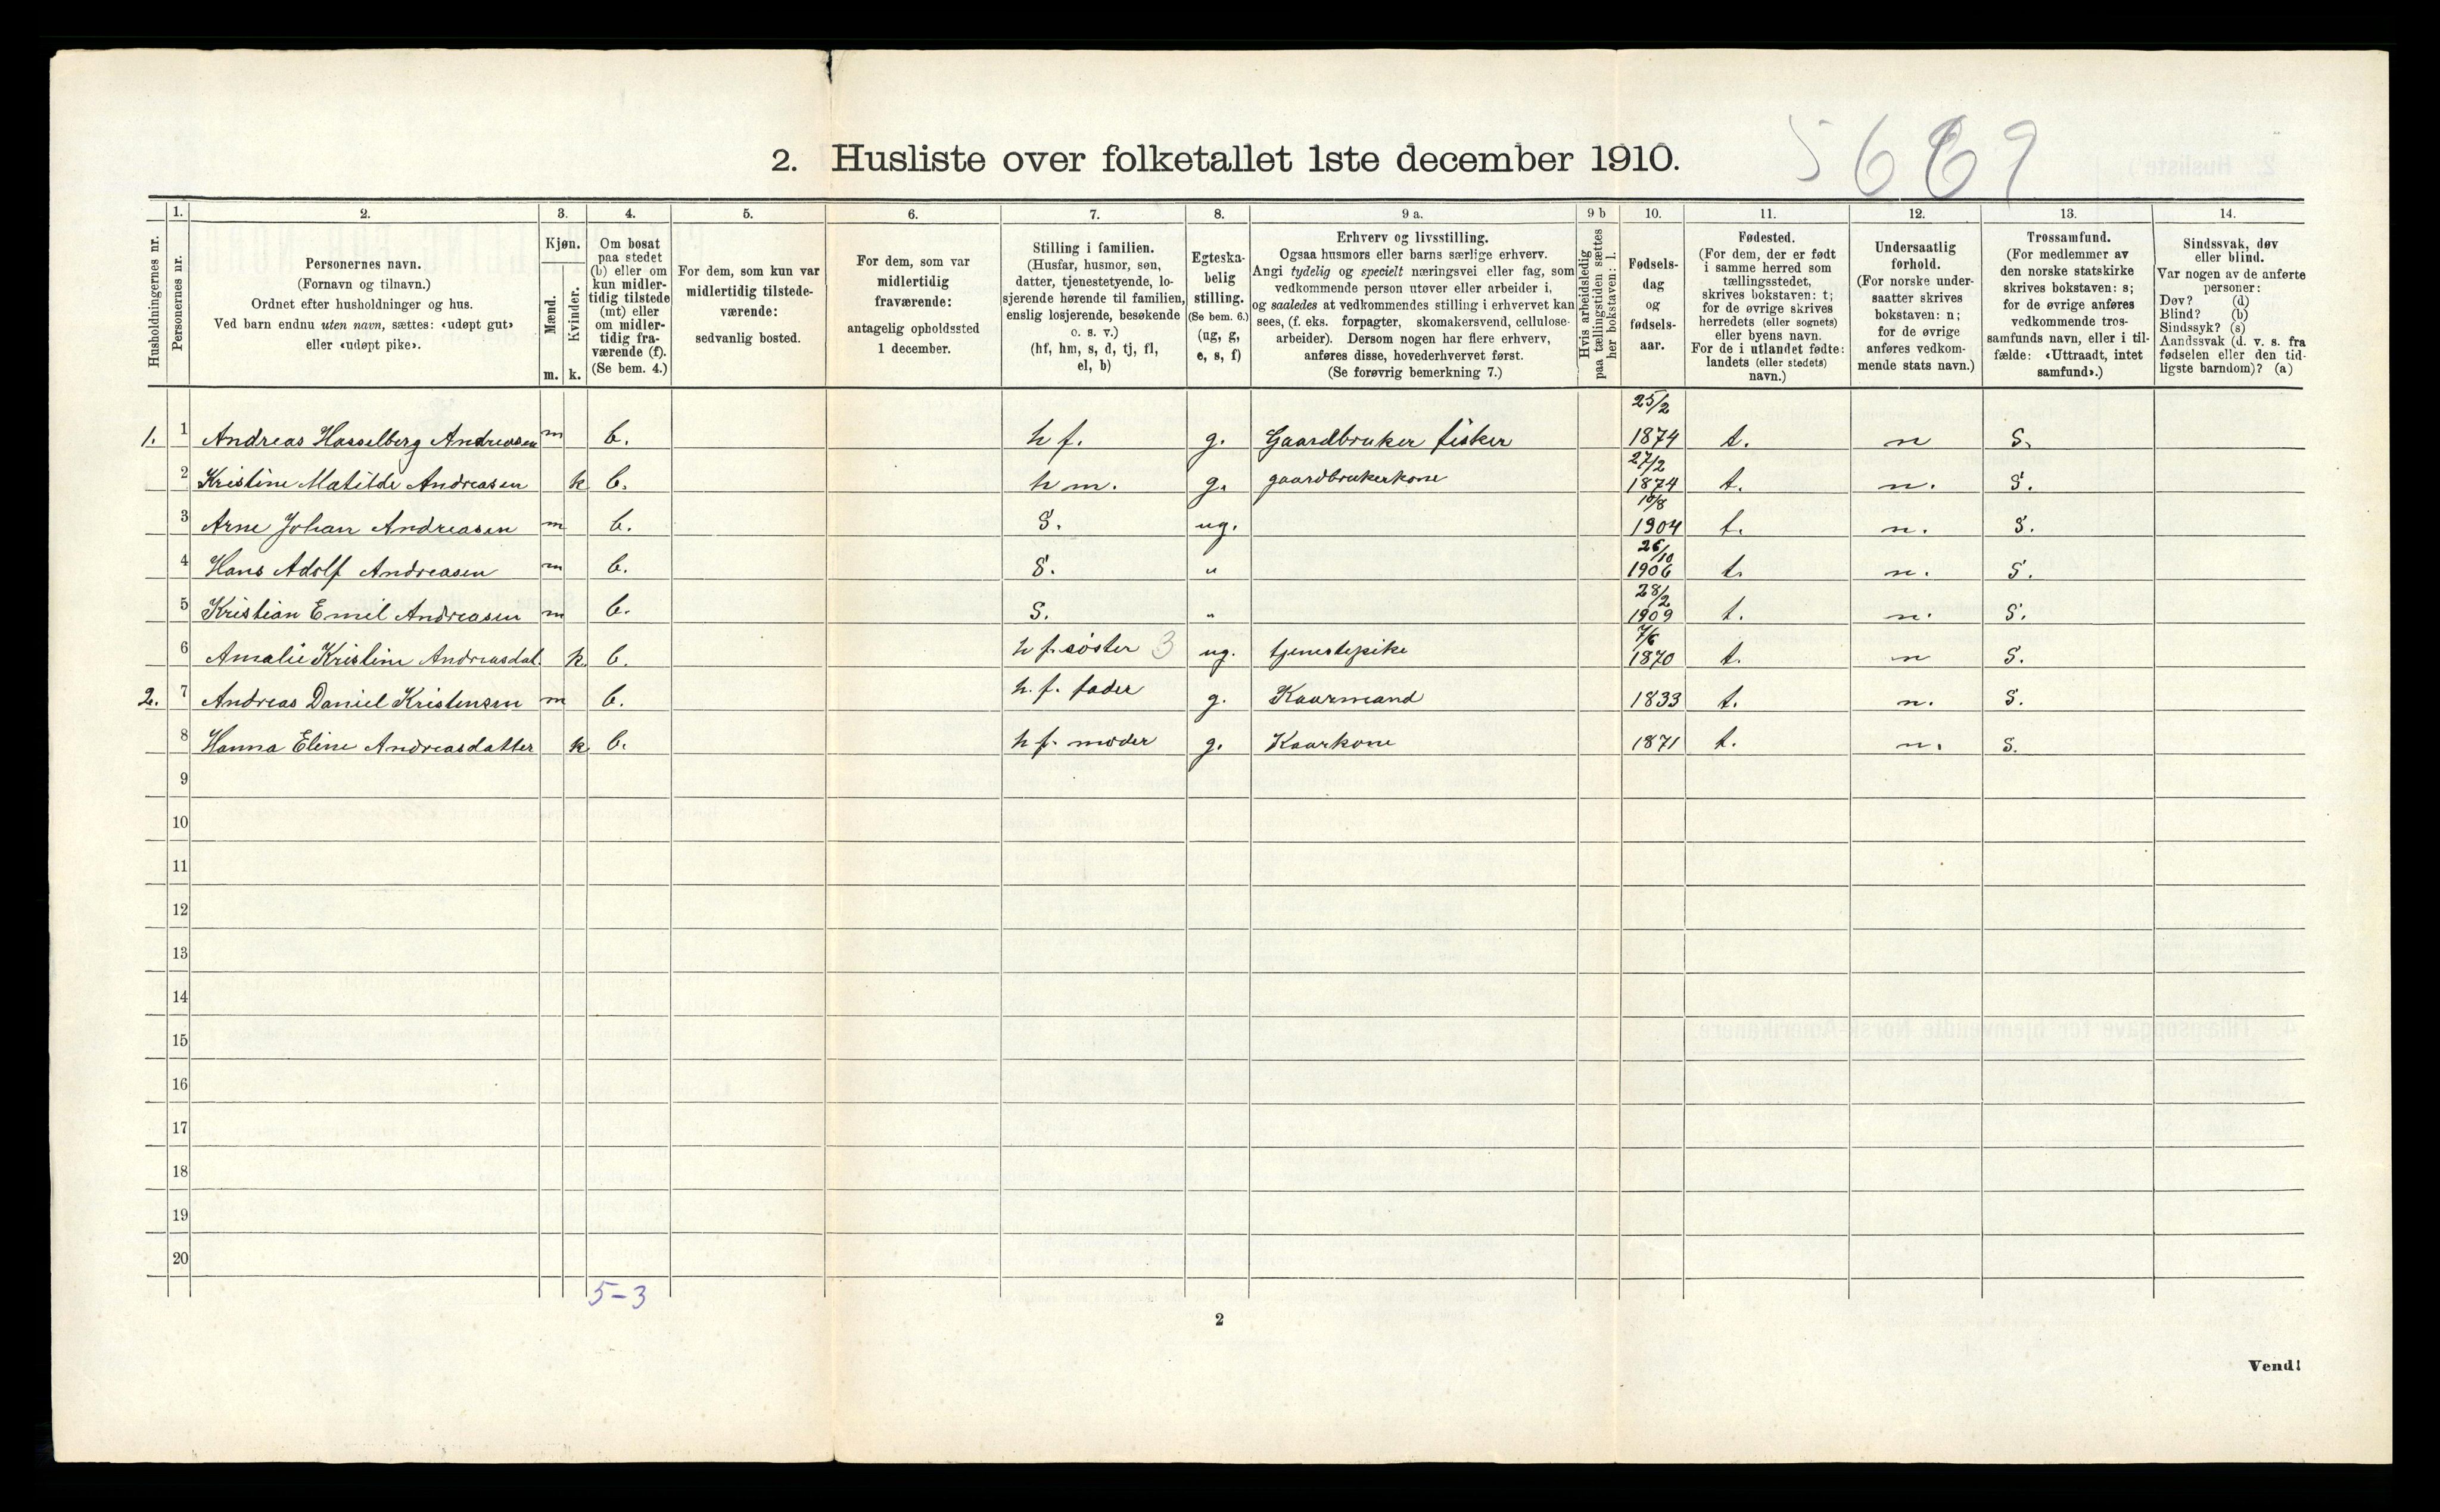 5669
2. Husliste over folketallet 1ste december 1910.
1. 2. 3. 4. 5. 6. 7. 8. 9 a. 9 b 10. 11. 12. 13. 14.
Husholdningernes nr.
Personernes nr.
Personernes navn.
(Fornavn og tilnavn.)
Ordnet efter husholdninger og hus.
Ved barn endnu uten navn, sættes: «udøpt gut»
eller «udøpt pike».
Kjøn.
Mænd.
Kvinder.
m. k.
Om bosat
paa stedet
(b) eller om
kun midler-
tidig tilstede
(mt) eller
om midler-
tidig fra-
værende (f).
(Se bem. 4.)
For dem, som kun var
midlertidig tilstede-
værende:
sedvanlig bosted.
For dem, som var
midlertidig
fraværende:
antagelig opholdssted
1 december.
Stilling i familien.
(Husfar, husmor, søn,
datter, tjenestetyende, lo-
sjerende hørende til familien,
enslig losjerende, besøkende
o. s. v.)
(hf, hm, s, d, tj, fl,
el, b)
Egteska-
belig
stilling.
(Se bem. 6.)
(ug, g,
e, s, f)
Erhverv og livsstilling.
Ogsaa husmors eller barns særlige erhverv.
Angi tydelig og specielt næringsvei eller fag, som
vedkommende person utøver eller arbeider i,
og saaledes at vedkommendes stilling i erhvervet kan
sees, (f. eks. forpagter, skomakersvend, cellulose-
arbeider). Dersom nogen har flere erhverv,
anføres disse, hovederhvervet først.
(Se forøvrig bemerkning 7.)
Hvis arbeidsledig
paa tællingstiden sættes
her bokstaven: l.
Fødsels-
dag
og
fødsels-
aar.
Fødested.
(For dem, der er født
i samme herred som
tællingsstedet,
skrives bokstaven: t;
for de øvrige skrives
herredets (eller sognets)
eller byens navn.
For de i utlandet fødte:
landets (eller stedets)
navn.)
Undersaatlig
forhold.
(For norske under-
saatter skrives
bokstaven: n;
for de øvrige
anføres vedkom-
mende stats navn.)
Trossamfund.
(For medlemmer av
den norske statskirke
skrives bokstaven: s;
for de øvrige anføres
vedkommende tros-
samfunds navn, eller i til-
fælde: «Uttraadt, intet
samfund».)
Sindssvak, døv
eller blind.
Var nogen av de anførte
personer:
Døv? (d)
Blind? (b)
Sindssyk? (s)
Aandssvak (d. v. s. fra
fødselen eller den tid-
ligste barndom)? (a)
1. 1 Andreas Hasselberg Andreasen m b. h f. g. Gaardbruker fisker 25/2 1874 t. n s.
2 Kristine Matilde Andreasen k b. h m. g. gaardbrukerkone 27/2 1874 t. n. s.
3 Arne Johan Andreasen m b. S. ug. 10/8 1904 t. n. s.
4 Hans Adolf Andreasen m b. S. " 26/10 1906 t. n. s.
5 Kristian Emil Andreasen m b. S. " 28/2 1909 t. n. s.
6 Amalie Kristine Andreasdat. k. b. h f. søster 3 ug. tjenestepike 7/6 1870 t. n s.
2. 7 Andreas Daniel Kristensen m b. h. f. fader g. Kaarmand 1833 t. n. s.
8 Hanna Eline Andreasdatter k b. h f. moder g. Kaarkone 1871 t. n. s.
9
10
11
12
13
14
15
16
17
18
19
20
5-3
2
Vend!